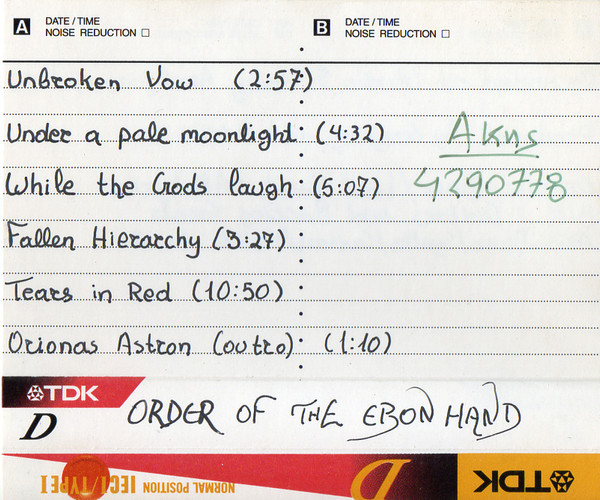 A DATE / TIME
NOISE REDUCTION □
B DATE / TIME
NOISE REDUCTION □
Unbroken Vow (2:57)
Under a pale moonlight (4:32)
While the Gods laugh (5:07)
Fallen Hierarchy (3:27)
Tears in Red (10:50)
Orionas Astron (outro) (1:10)
Akns
4290778
TDK
D
ORDER OF THE EBON HAND
NORMAL POSITION IECI/TYPE I
D
TDK